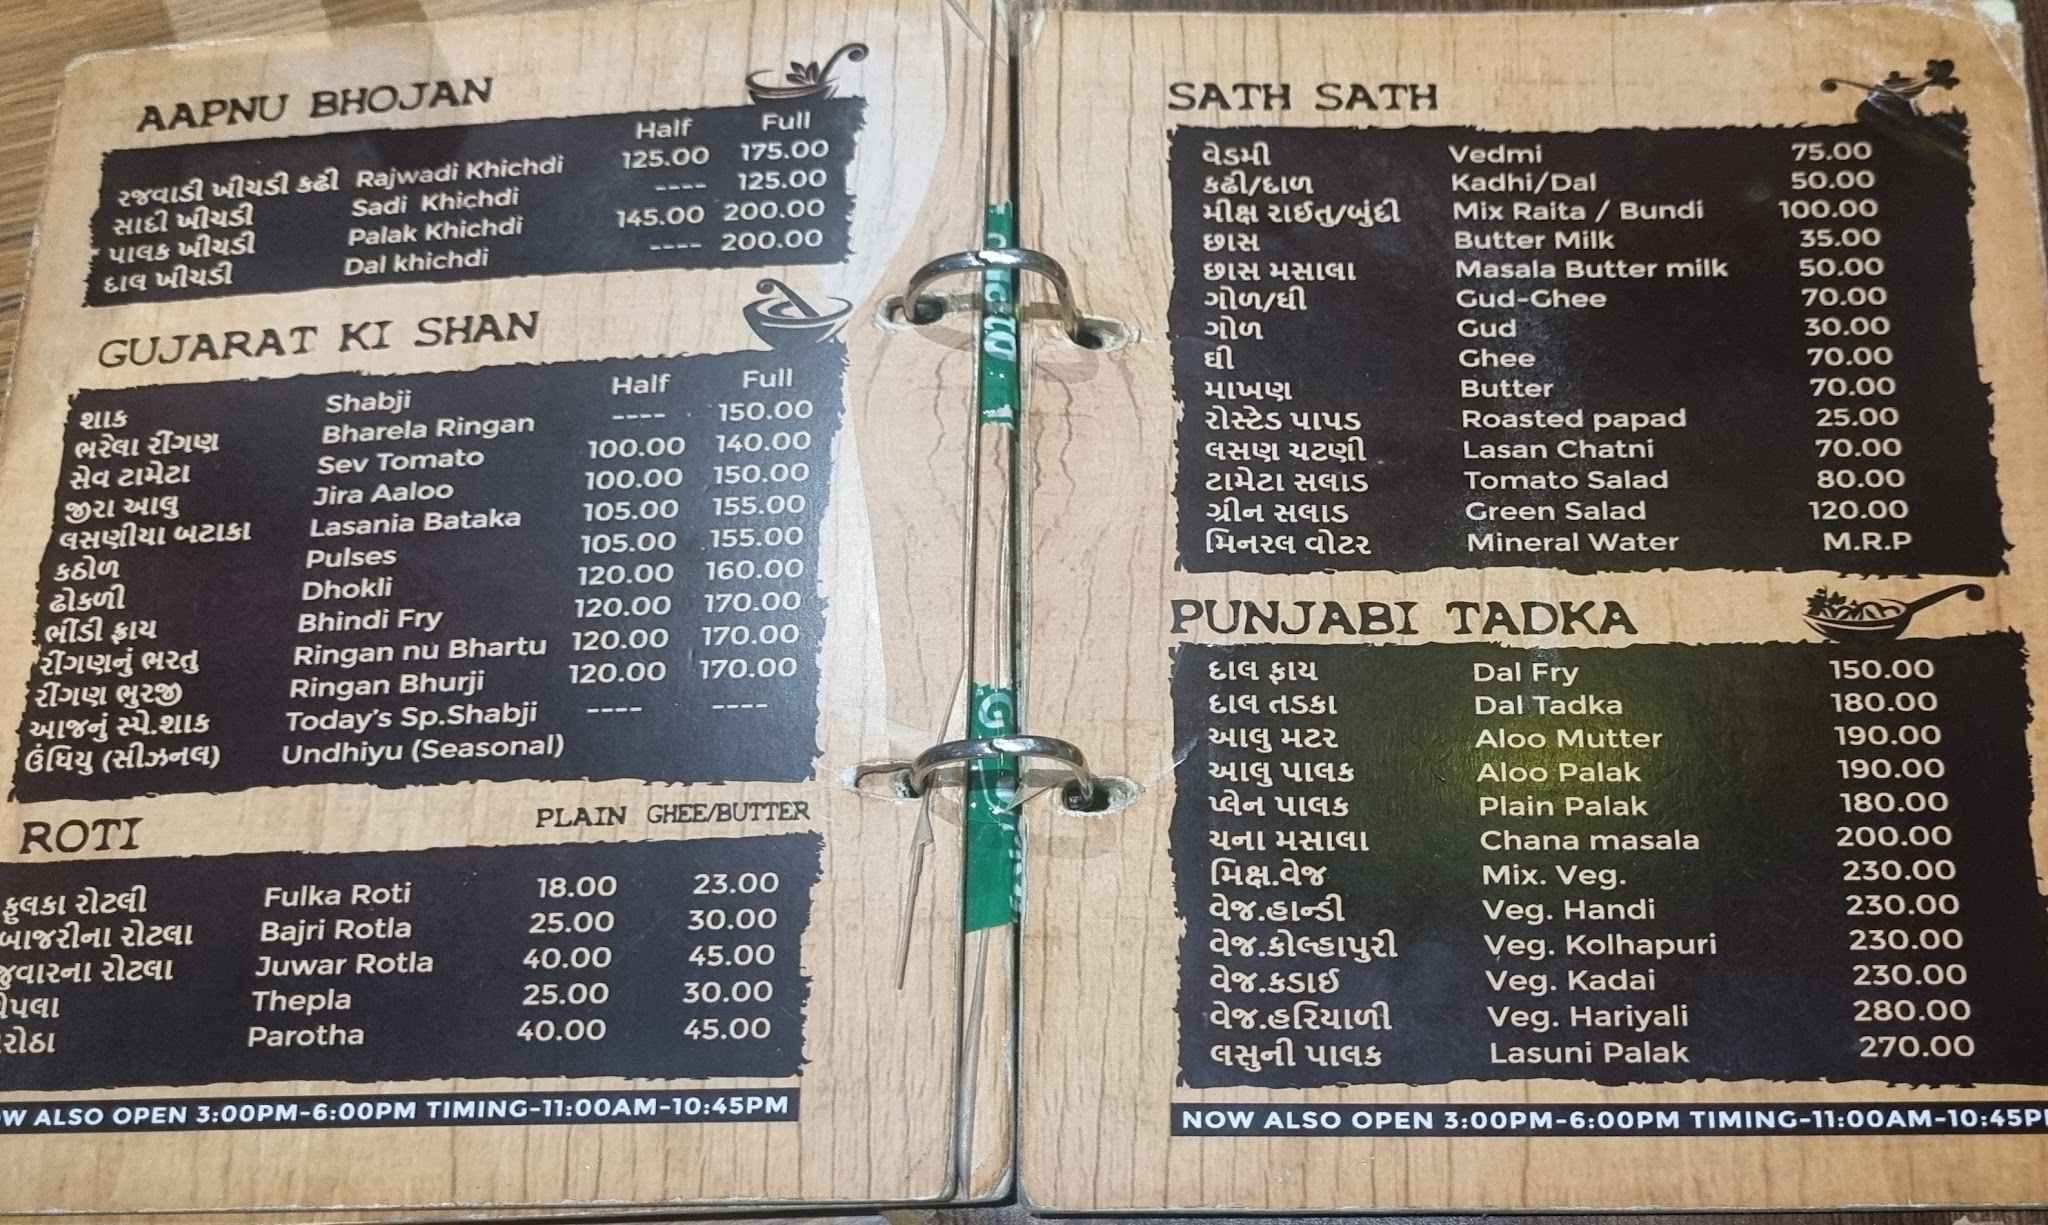 AAPNU BHOJAN
Half Full
રજવાડી ખીચડી કઢી Rajwadi Khichdi 125.00 175.00
સાદી ખીચડી Sadi Khichdi ---- 125.00
પાલક ખીચડી Palak Khichdi 145.00 200.00
દાલ ખીચડી Dal khichdi ---- 200.00
GUJARAT KI SHAN
શાક Shabji Half Full
ભરેલા રીંગણ Bharela Ringan ---- 150.00
સેવ ટામેટા Sev Tomato 100.00 140.00
જીરા આલુ Jira Aaloo 100.00 150.00
લસણીયા બટાકા Lasania Bataka 105.00 155.00
કઠોળ Pulses 105.00 155.00
ઢોકળી Dhokli 120.00 160.00
ભીંડી ફ્રાય Bhindi Fry 120.00 170.00
રીંગણનું ભરતુ Ringan nu Bhartu 120.00 170.00
રીંગણ ભુરજી Ringan Bhurji 120.00 170.00
આજનું સ્પે.શાક Today's Sp.Shabji ---- ----
ઉંધિયુ (સીઝનલ) Undhiyu (Seasonal)
ROTI PLAIN GHEE/BUTTER
ફુલકા રોટલી Fulka Roti 18.00 23.00
બાજરીના રોટલા Bajri Rotla 25.00 30.00
જુવારના રોટલા Juwar Rotla 40.00 45.00
પલા Thepla 25.00 30.00
રોઠા Parotha 40.00 45.00
OW ALSO OPEN 3:00PM-6:00PM TIMING-11:00AM-10:45PM
SATH SATH
વેડમી Vedmi 75.00
કઢી/દાળ Kadhi/Dal 50.00
મીક્ષ રાઈતુ/બુંદી Mix Raita / Bundi 100.00
છાસ Butter Milk 35.00
છાસ મસાલા Masala Butter milk 50.00
ગોળ/ઘી Gud-Ghee 70.00
ગોળ Gud 30.00
ઘી Ghee 70.00
માખણ Butter 70.00
રોસ્ટેડ પાપડ Roasted papad 25.00
લસણ ચટણી Lasan Chatni 70.00
ટામેટા સલાડ Tomato Salad 80.00
ગ્રીન સલાડ Green Salad 120.00
મિનરલ વોટર Mineral Water M.R.P
PUNJABI TADKA
દાલ ફ્રાય Dal Fry 150.00
દાલ તડકા Dal Tadka 180.00
આલુ મટર Aloo Mutter 190.00
આલુ પાલક Aloo Palak 190.00
પ્લેન પાલક Plain Palak 180.00
ચના મસાલા Chana masala 200.00
મિક્ષ.વેજ Mix. Veg. 230.00
વેજ.હાન્ડી Veg. Handi 230.00
વેજ.કોલ્હાપુરી Veg. Kolhapuri 230.00
વેજ.કડાઈ Veg. Kadai 230.00
વેજ.હરિયાળી Veg. Hariyali 280.00
લસુની પાલક Lasuni Palak 270.00
NOW ALSO OPEN 3:00PM-6:00PM TIMING-11:00AM-10:45PM